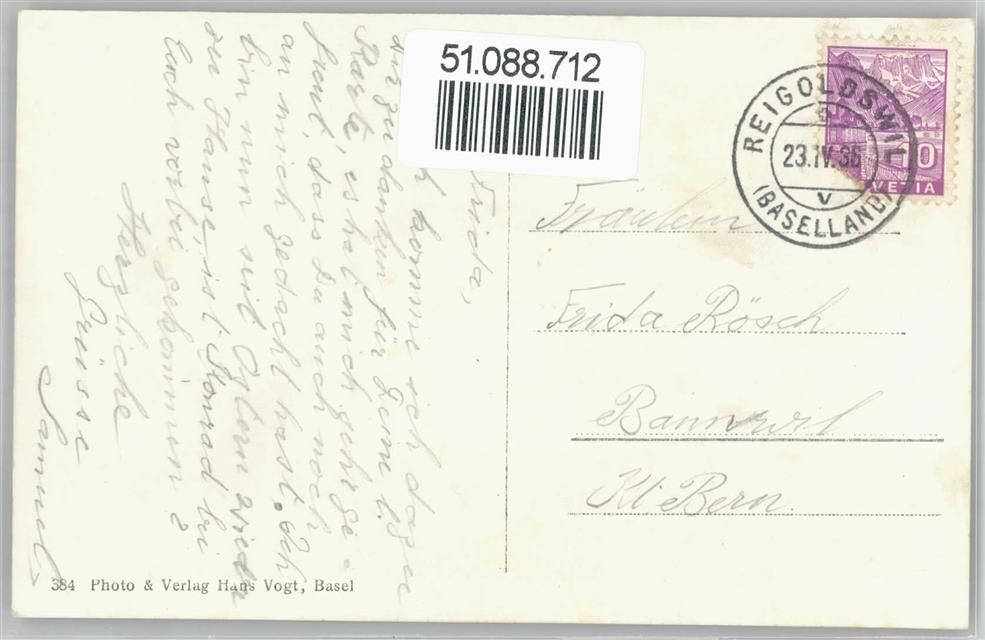 51.088.712
REIGOLDSWIL
23.IV.36
V
(BASELLAND)
10
VETIA
Frida,
komme ich dazu
zu danken für Deine l.
Karte, es hat mich sehr ge-
freut, dass Du auch noch
an mich gedacht hast. Ich
bin nun seit Ostern wieder
zu Hause, ist Konrad bei
Euch vorbei gekommen?
Herzliche
Grüsse
Samuel
Fräulein
Frida Rösch
Bannwil
Kt. Bern.
384 Photo & Verlag Hans Vogt, Basel